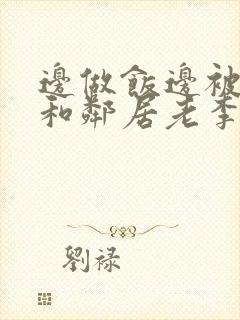 邊做飯邊被
和鄰居老李
劉祿